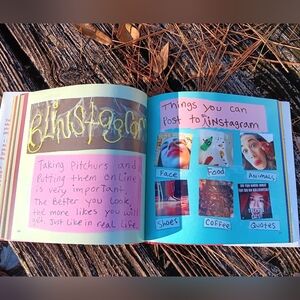 Blinstagram
Taking Pitchurs and
Putting them online
is very important.
The Better you Look,
the more likes you will
get. Just like in real life.
Things you can
Post to iinstagram
Face
Food
Animals
Shoes
Coffee
Quotes